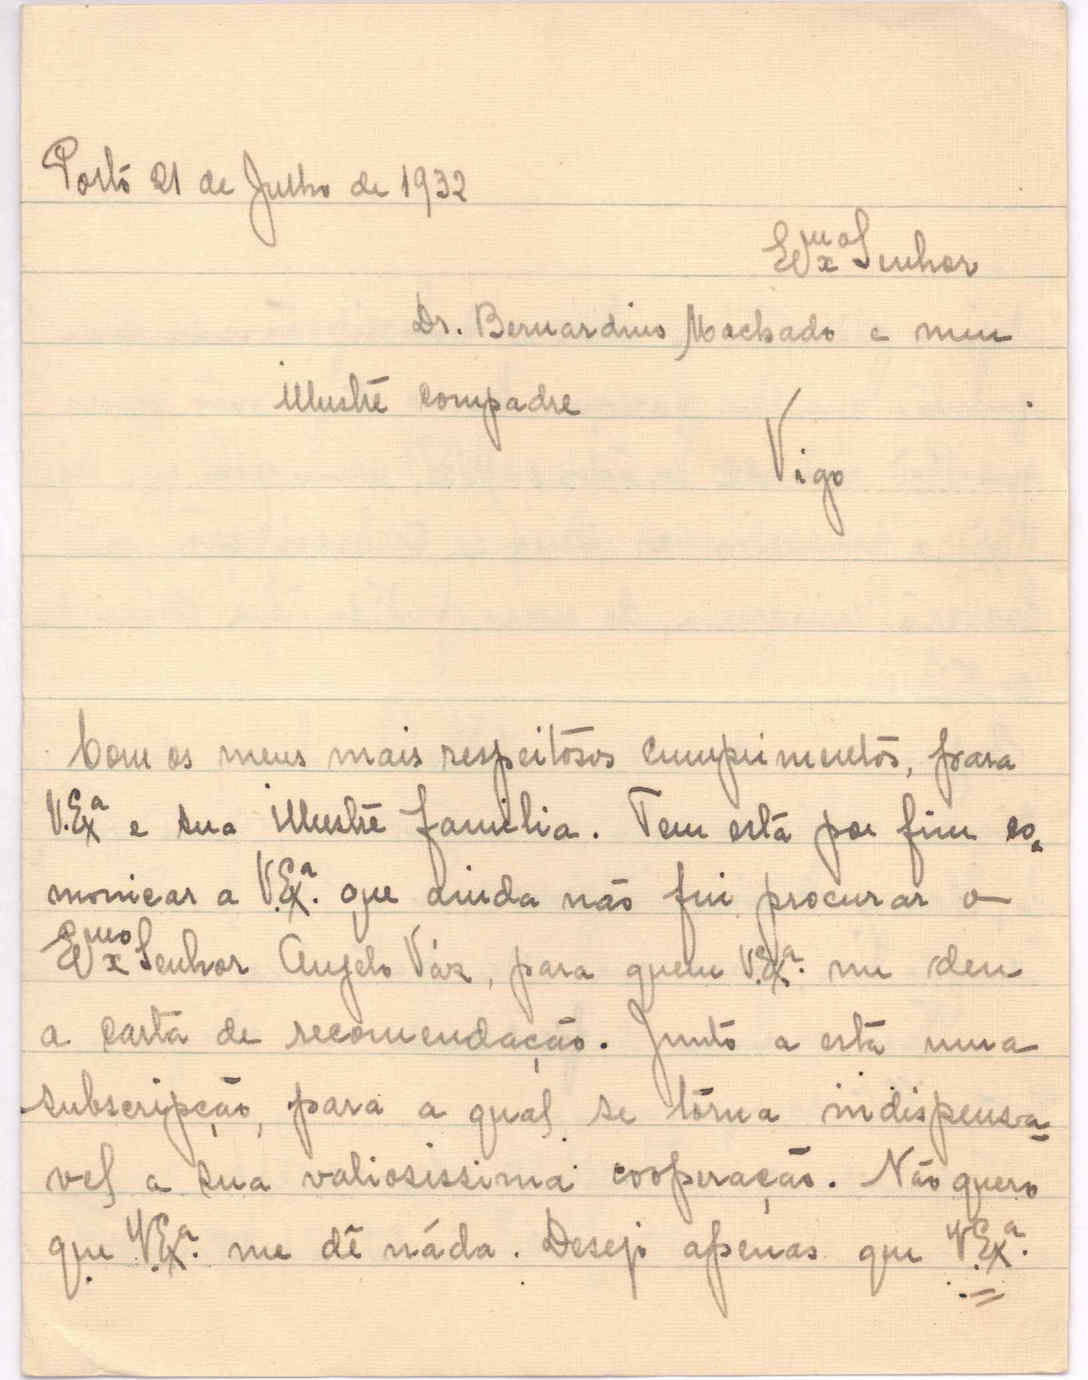 Porto 21 de Julho de 1932
Exmo Senhor
Dr. Bernardino Machado e meu
illustre compadre
Vigo
Com os meus mais respeitosos cumprimentos, para
V. Exa e sua illustre familia. Tem esta por fim co-
monicar a V. Exa. que ainda não fui procurar o
Exmo Senhor Angelo Váz, para quem V. Exa. me deu
a carta de recomendação. Junto a esta uma
subscripção, para a qual se tórna indispensa-
vel a sua valiosissima cooperação. Não quero
que V. Exa. me dê náda. Desejo apenas que V. Exa.